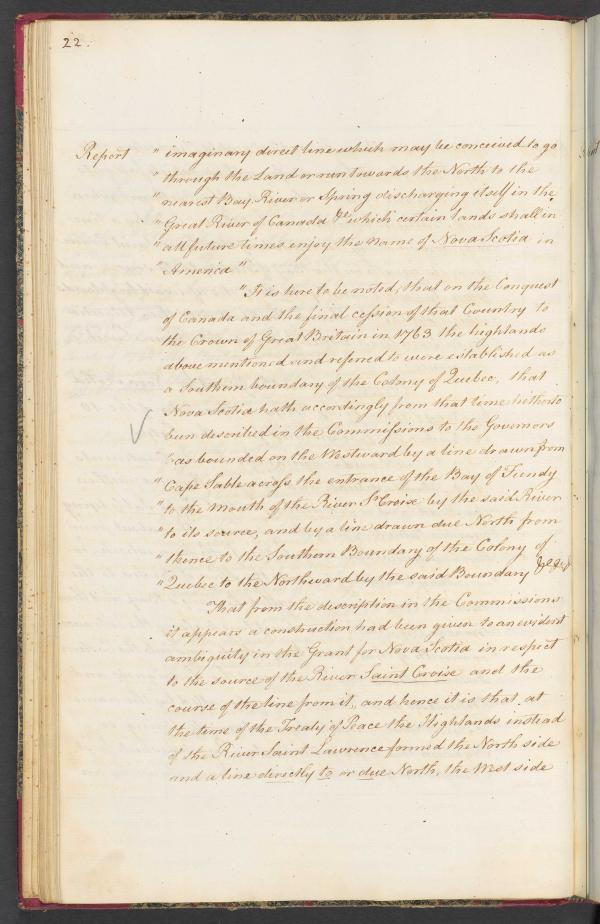 22.
Report " imaginary direct line which may be conceived to go
" through the Land or run towards the North to the
" nearest Bay River or Spring discharging itself in the
" Great River of Canada &c which certain lands shall in
" all future times enjoy the name of Nova Scotia in
" America"
"It is here to be noted, that on the Conquest
of Canada and the final cession of that Country to
the Crown of Great Britain in 1763 the highlands
above mentioned and referred to were established as
a Southern boundary of the Colony of Quebec, that
Nova Scotia hath accordingly from that time hitherto
been described in the Commissions to the Governors
"as bounded on the Westward by a line drawn from
" Cape Sable across the entrance of the Bay of Fundy
" to the mouth of the River St Croise by the said River
" to its source, and by a line drawn due North from
" thence to the Southern Boundary of the Colony of
" Quebec to the Northward by the said Boundary &c &c"
That from the description in the Commissions
it appears a construction had been given to an evident
ambiguity in the Grant for Nova Scotia in respect
to the source of the River Saint Croise and the
course of the line from it, and hence it is that at
the time of the Treaty of Peace the Highlands instead
of the River Saint Lawrence formed the North side
and a line directly to or due North, the West side